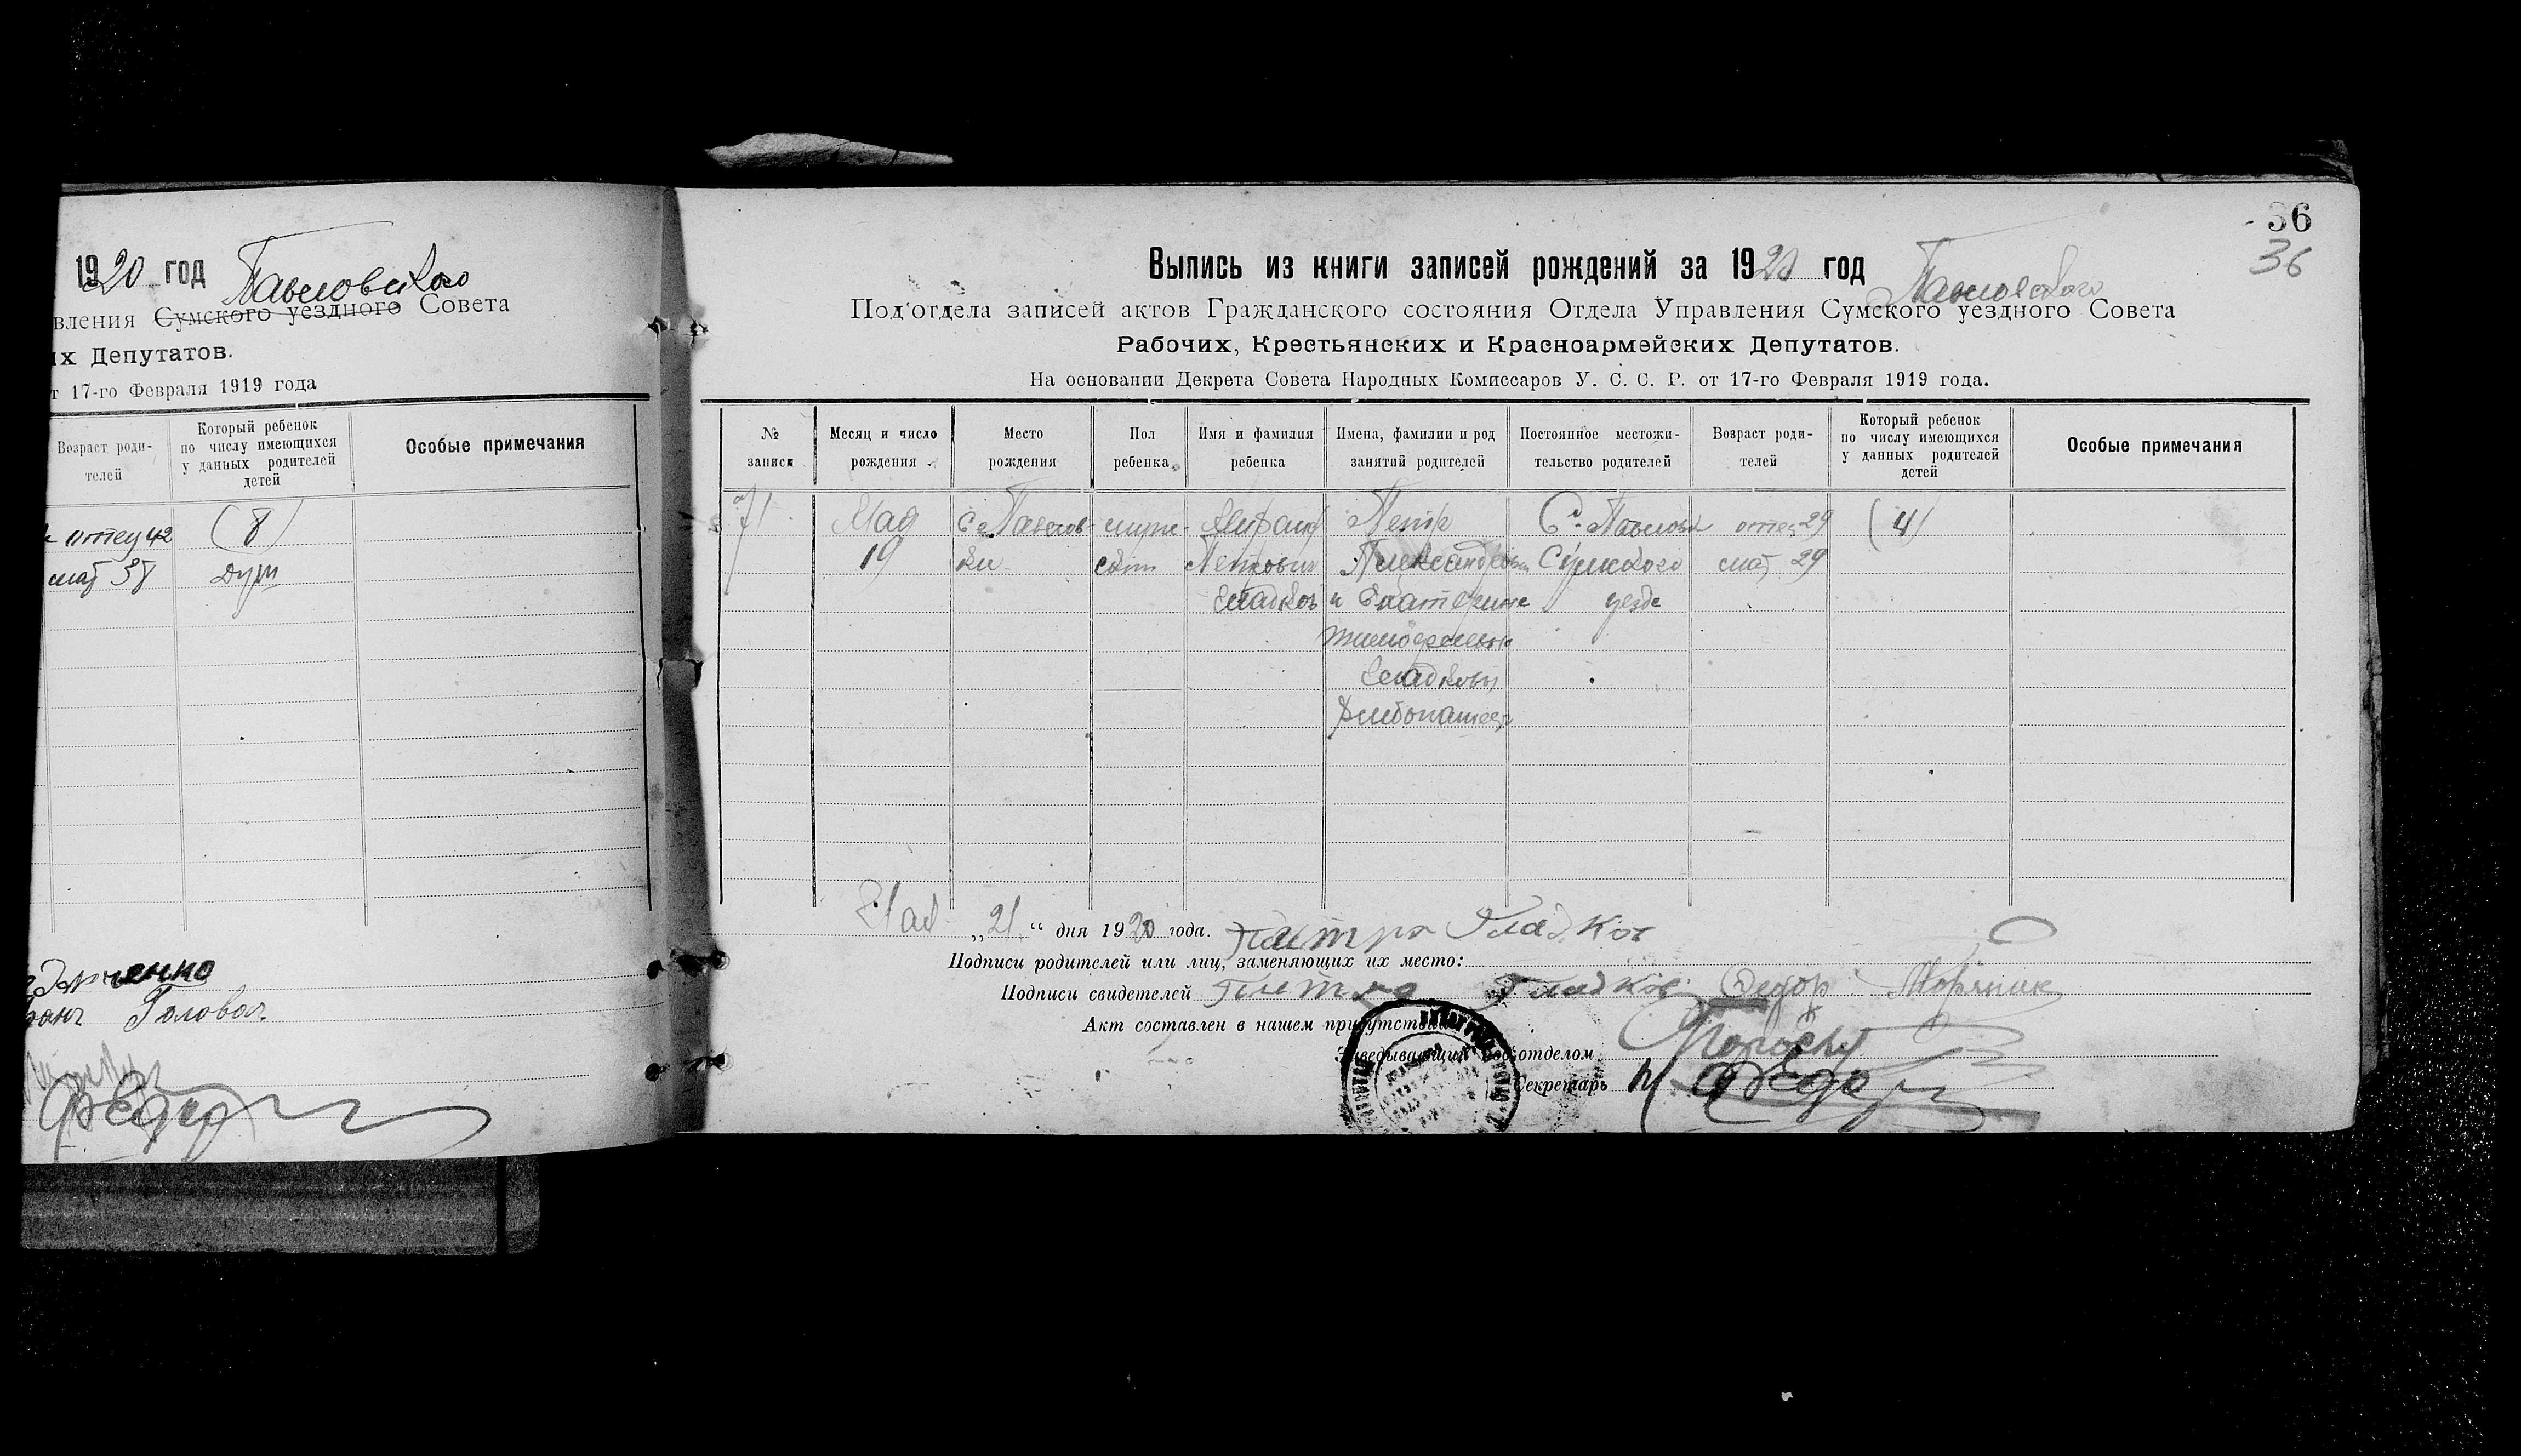 1920 год Павловского
вления Сумского уездного Совета
их Депутатов.
т 17-го Февраля 1919 года
Возраст роди-
телей
Который ребенок
по числу имеющихся
у данных родителей
детей
Особые примечания
отец 42 (8)
мат 38
Головач
Федор
36
36
Выпись из книги записей рождений за 1920 год
Павловского
Под'отдела записей актов Гражданского состояния Отдела Управления Сумского уездного Совета
Рабочих, Крестьянских и Красноармейских Депутатов.
На основании Декрета Совета Народных Комиссаров У. С. С. Р. от 17-го Февраля 1919 года.
№
записи
Месяц и число
рождения
Место
рождения
Пол
ребенка
Имя и фамилия
ребенка
Имена, фамилии и род
занятий родителей
Постоянное местожи-
тельство родителей
Возраст роди-
телей
Который ребенок
по числу имеющихся
у данных родителей
детей
Особые примечания
71 Мая с. Павлов- муже- Петр С. Павловки отец 29 (4)
19 ки ский Петрович Александрович Сумского мат 29
Гладков и Екатерина уезда
Тимофеевна
Гладковы
Хлебопашец
Мая „21“ дня 1920 года. Гладков
Подписи родителей или лиц, заменяющих их место:
Подписи свидетелей Гладков Федор
Акт составлен в нашем присутствии
Заведывающий подотделом
Секретарь